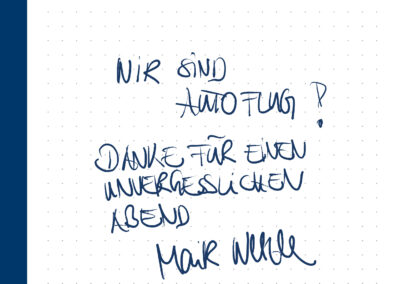 WIR SIND
AUTOFLUG!
DANKE FÜR EINEN
UNVERGESSLICHEN
ABEND
MAIK